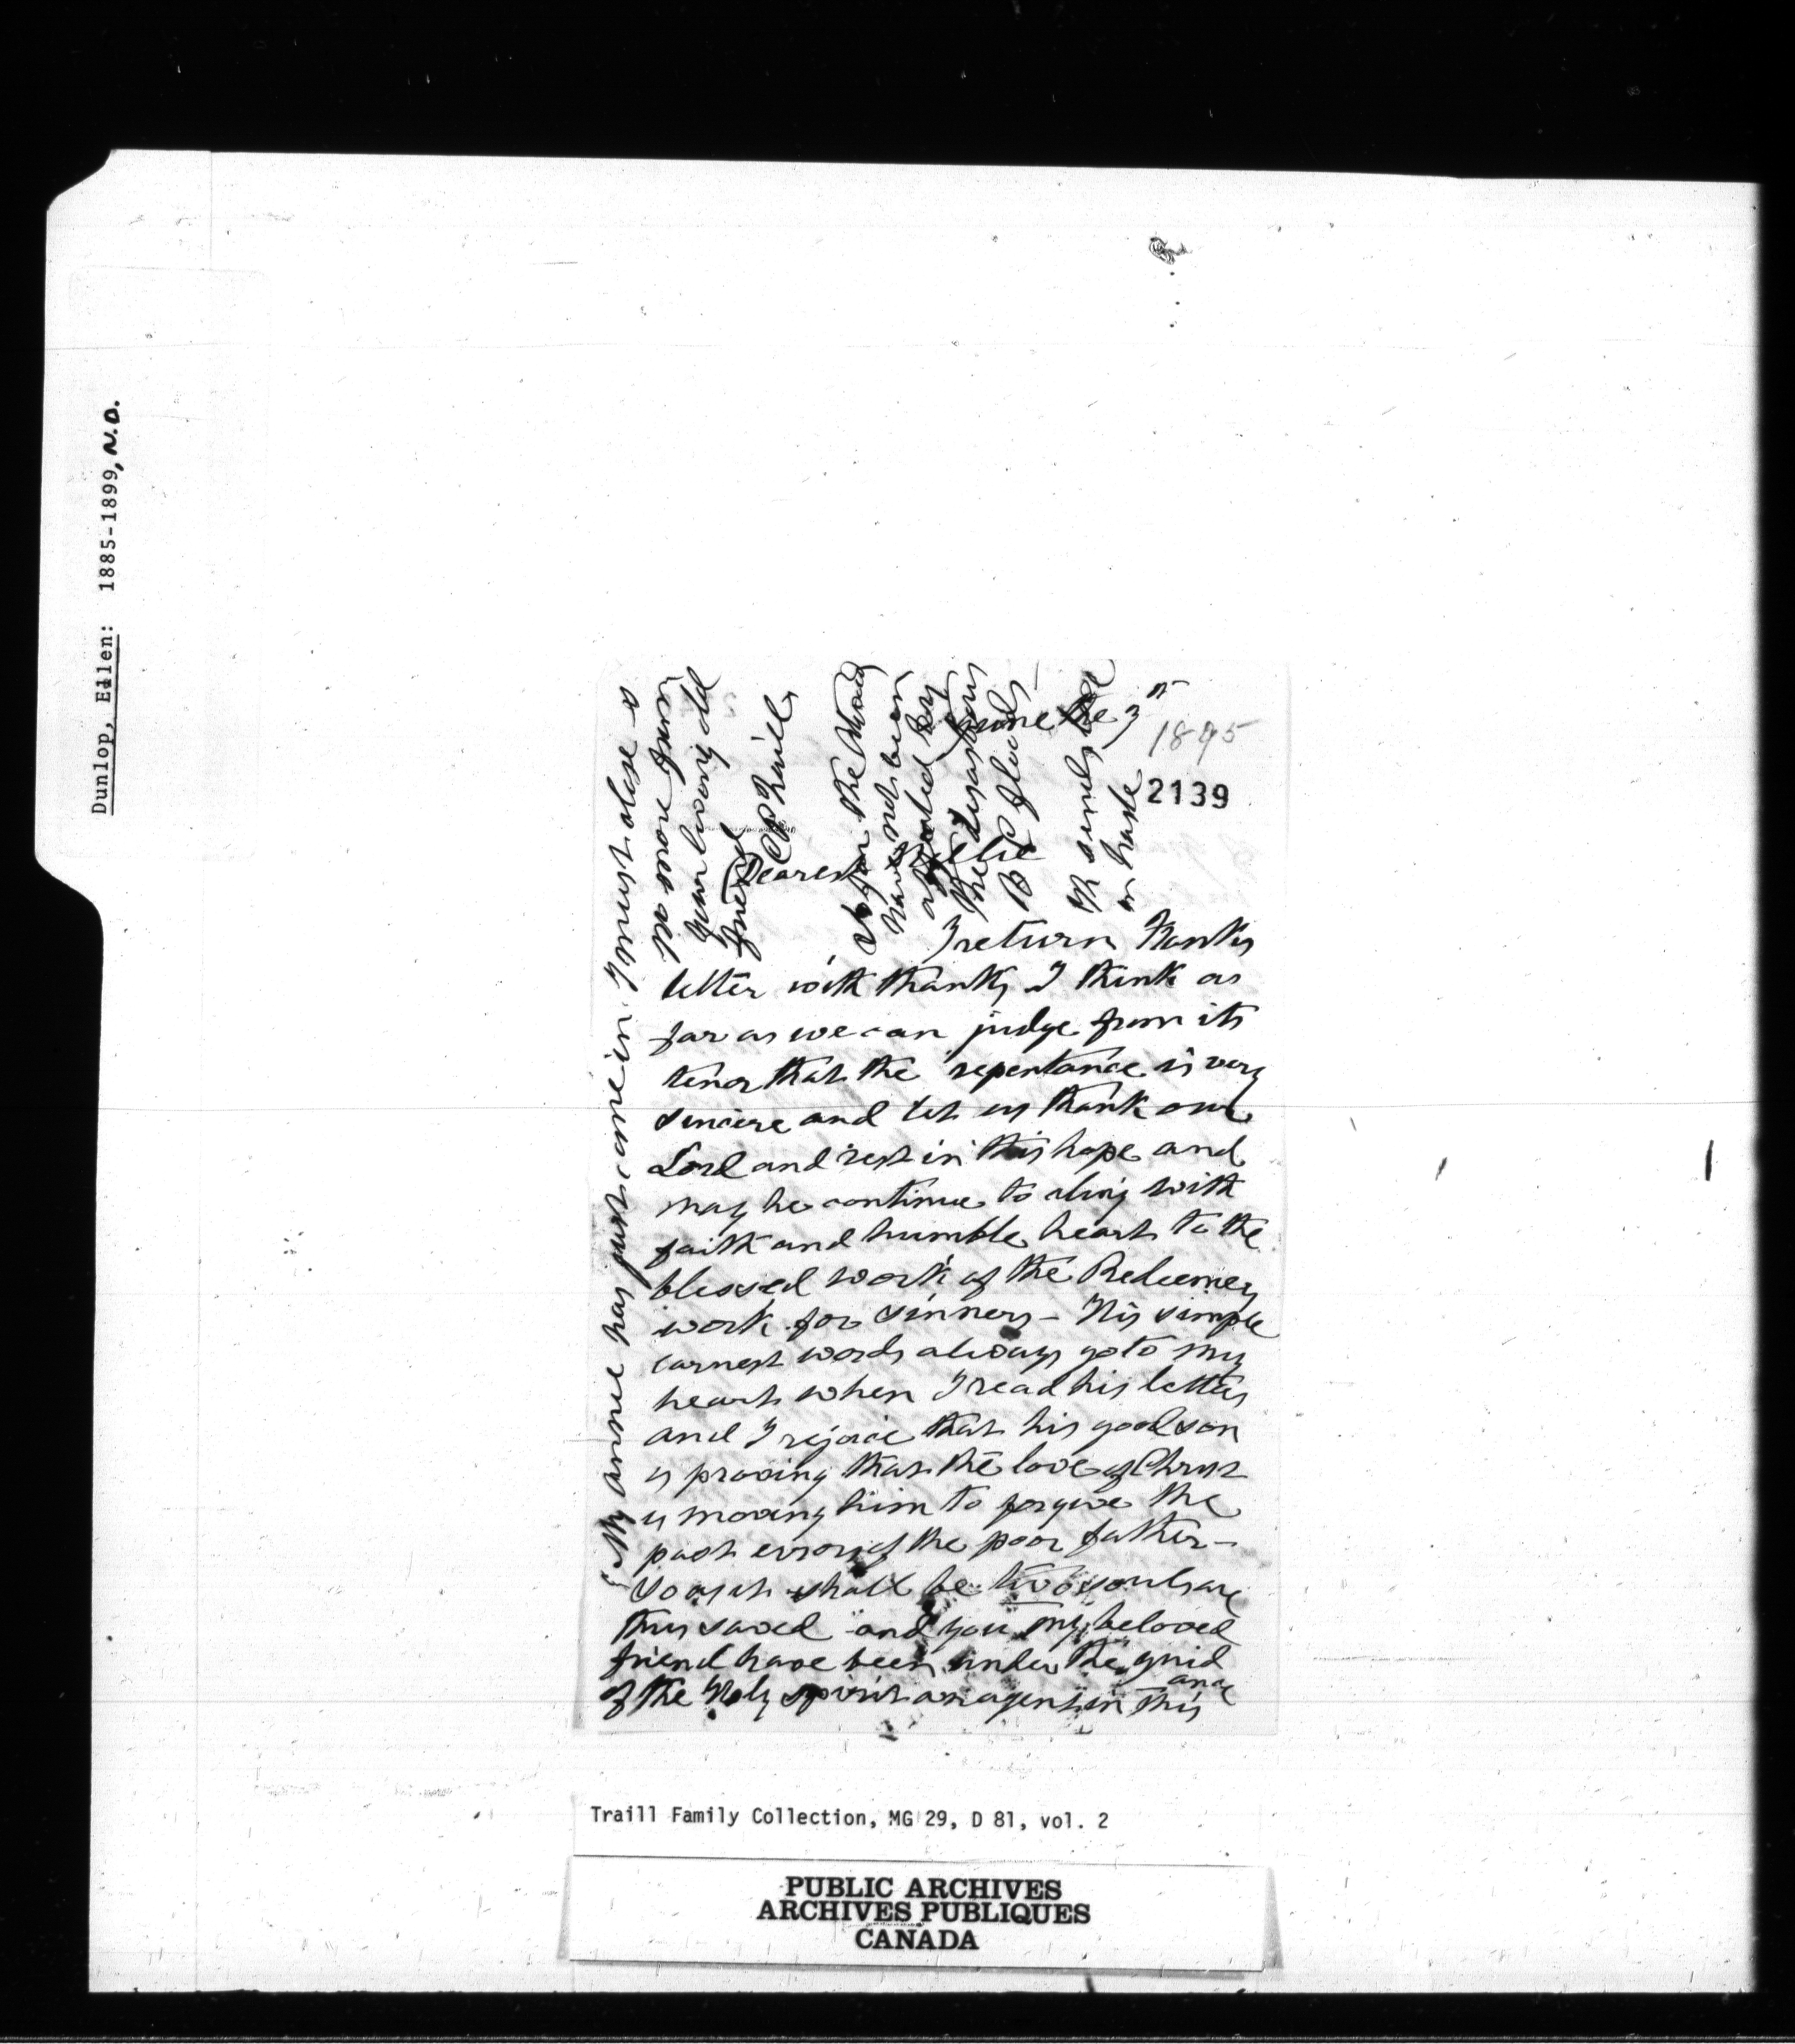 Dunlop, Ellen: 1885-1899, N.D.
June the 3rd
1895
2139
Dearest Ellie
I return Franks
letter with thanks I think as
far as we can judge from its
tenor that the repentance is very
sincere and let us thank our
Lord and rest in this hope and
may he continue to cling with
faith and humble heart to the
blessed work of the Redeemers
work for sinners - His simple
earnest words always go to my
heart when I read his letters
and I rejoice that his good son
is proving that the love of Christ
is moving him to forgive the
past errors of the poor father -
So as it shall be two souls are
thus saved and you my beloved
friend have been under the guid
ance
of the Holy spirit an agent in this
My annie has just come in I must close -
no more from
your loving old
friend
CP Traill
So far the
have not been
affected by
the disastrous
B C floods
in haste
Traill Family Collection, MG 29, D 81, vol. 2
PUBLIC ARCHIVES
ARCHIVES PUBLIQUES
CANADA